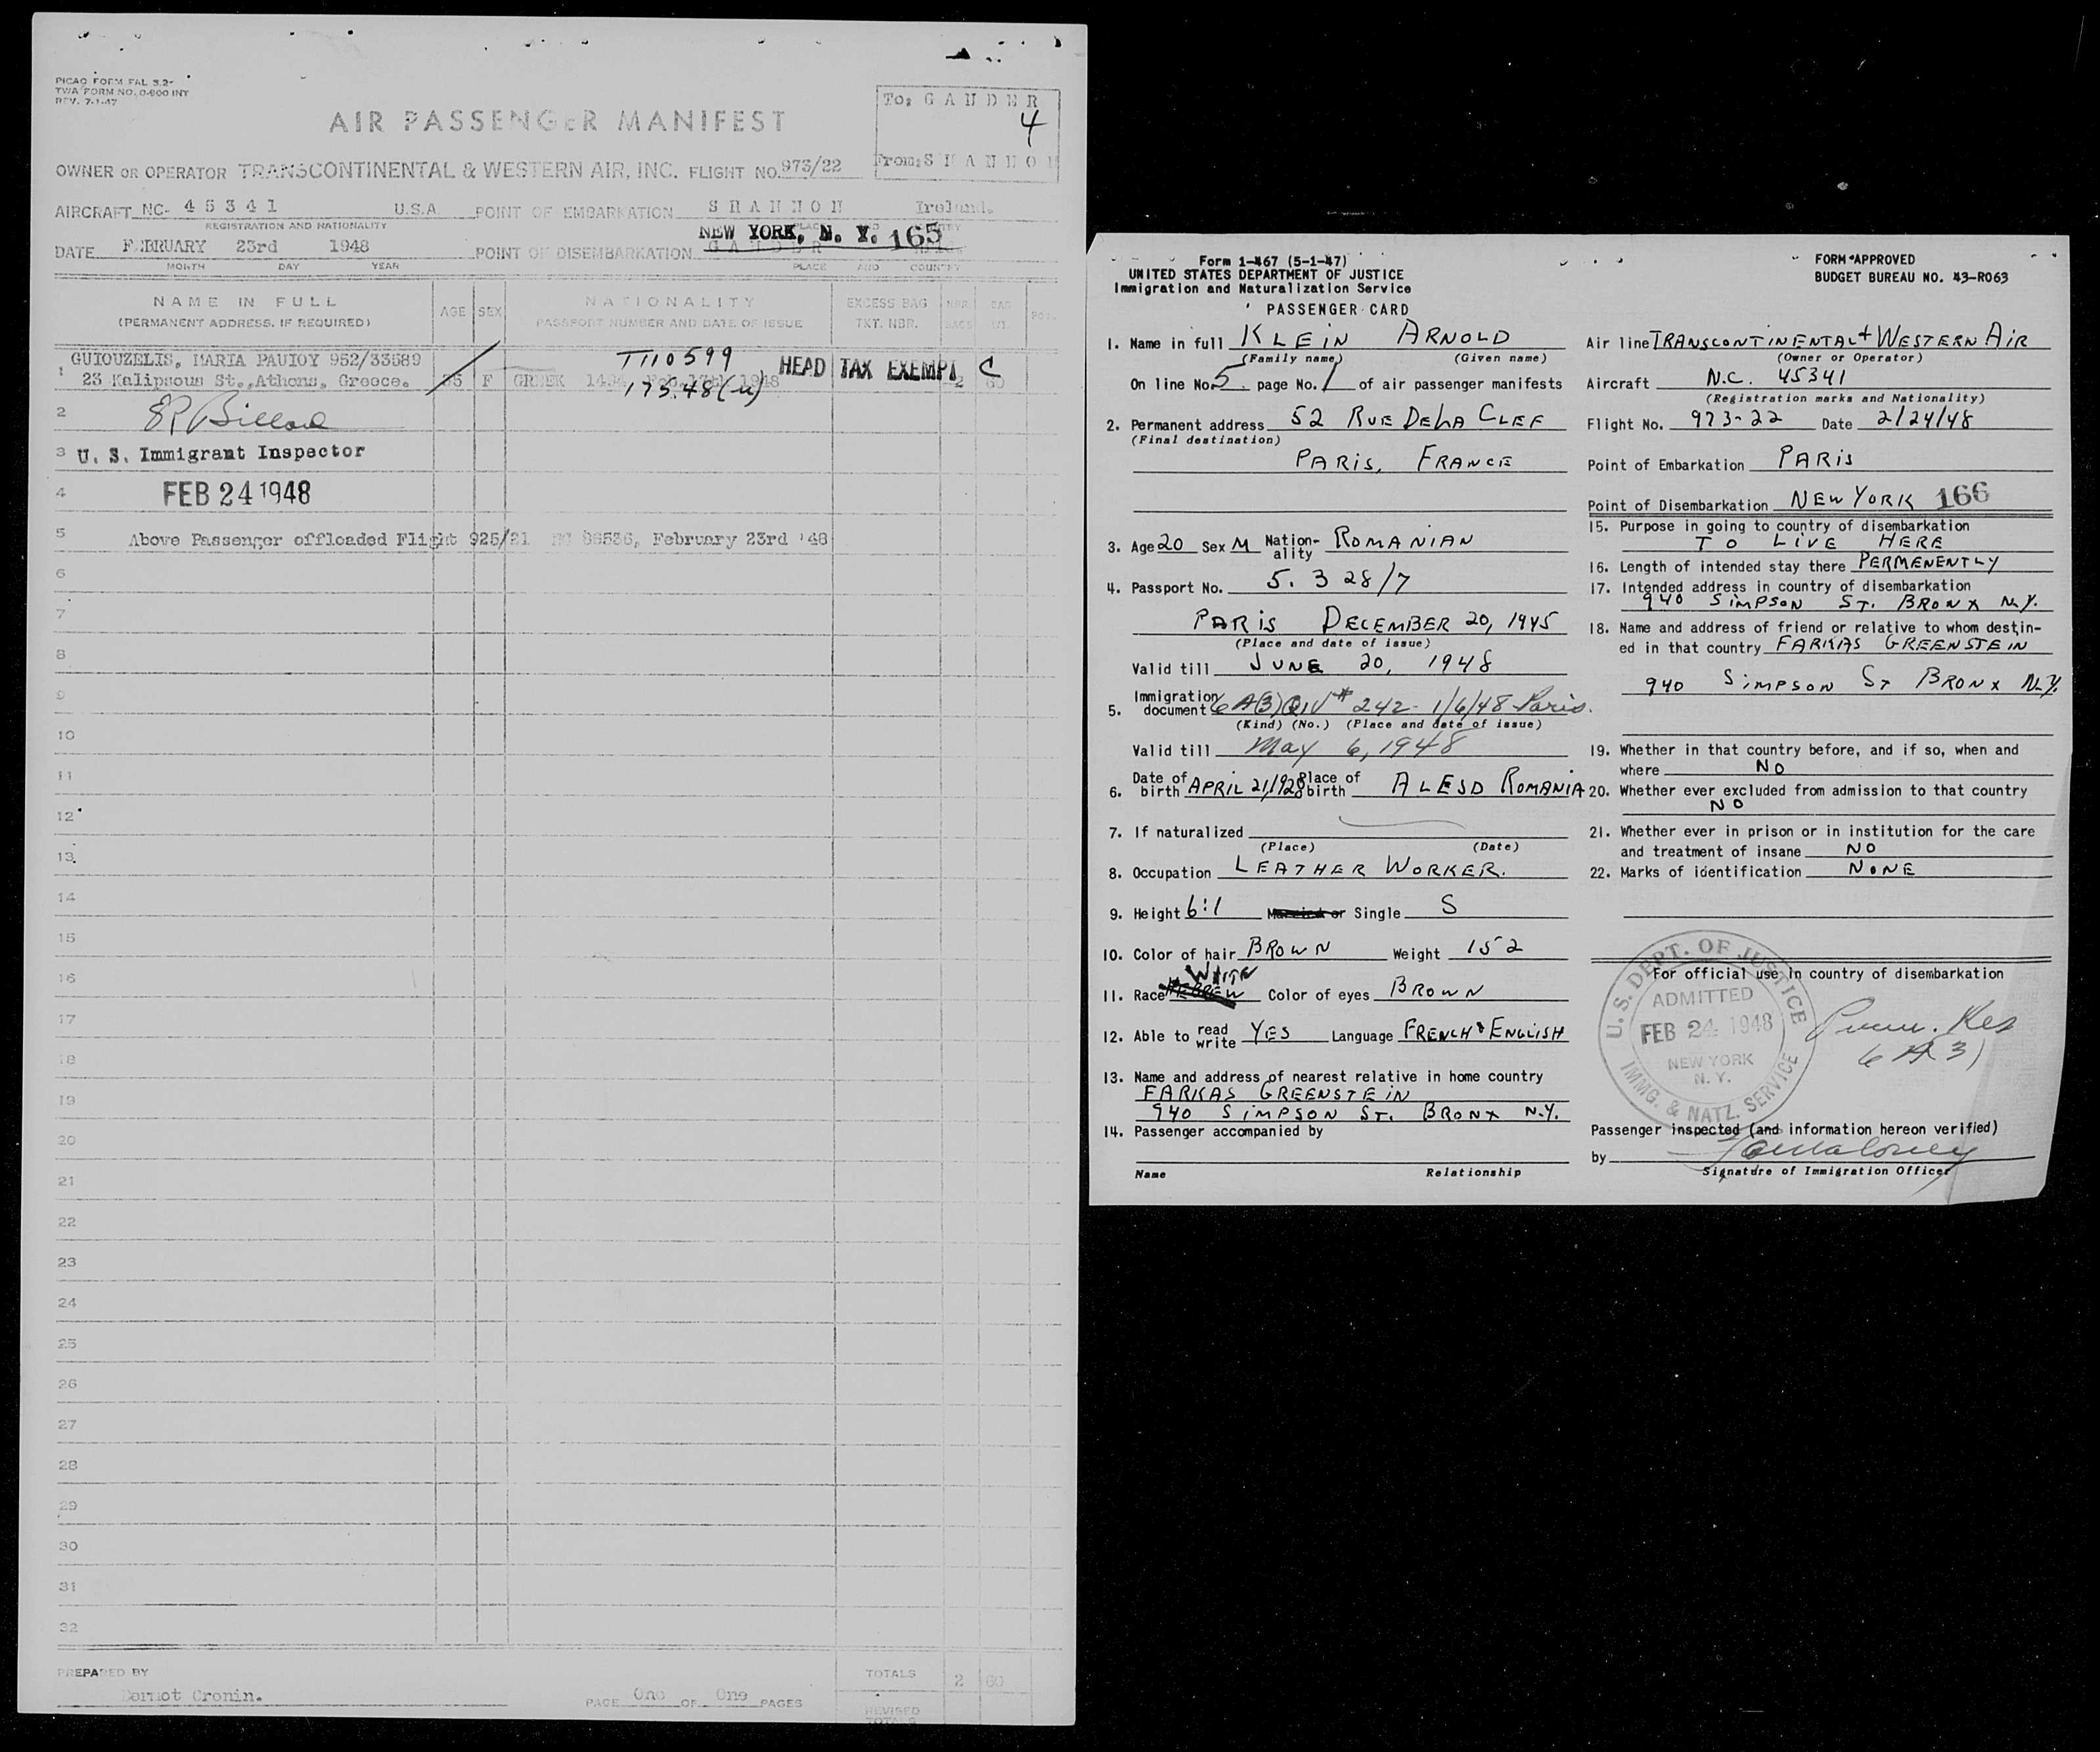 PICAO FORM FAL 3.2-
TWA FORM NO. 0-800 INT
REV. 7-1-47
To: G A N D E R
4
From: S H A N N O N
AIR PASSENGER MANIFEST
OWNER OR OPERATOR TRANSCONTINENTAL & WESTERN AIR, INC. FLIGHT NO. 973/22
AIRCRAFT NC- 4 5 3 4 1 U.S.A. POINT OF EMBARKATION S H A N N O N Ireland.
REGISTRATION AND NATIONALITY
NEW YORK, N. Y. 165
DATE FEBRUARY 23rd 1948 POINT OF DISEMBARKATION G A N D E R
MONTH DAY YEAR PLACE AND COUNTRY
NAME IN FULL
(PERMANENT ADDRESS, IF REQUIRED)
AGE SEX
NATIONALITY
PASSPORT NUMBER AND DATE OF ISSUE
EXCESS BAG
TKT. NBR.
NBR.
BAGS
BAG
WT.
1 GUIOUZELIS, MARIA PAUIOY 952/33589 T110599 HEAD TAX EXEMPT C
23 Kalipsous St., Athens, Greece. F GREEK 1948 2 60
175.48(u)
2
3 U. S. Immigrant Inspector
4 FEB 24 1948
5 Above Passenger offloaded Flight 925/21 NC 86536, February 23rd '48
6
7
8
9
10
11
12
13
14
15
16
17
18
19
20
21
22
23
24
25
26
27
28
29
30
31
32
PREPARED BY TOTALS 2 60
Dermot Cronin. PAGE One OF One PAGES
REVISED
TOTALS
Form I-467 (5-1-47)
UNITED STATES DEPARTMENT OF JUSTICE
Immigration and Naturalization Service
FORM APPROVED
BUDGET BUREAU NO. 43-R063
PASSENGER CARD
1. Name in full KLEIN ARNOLD
(Family name) (Given name)
On line No. 5 page No. 1 of air passenger manifests
2. Permanent address 52 RUE DE LA CLEF
(Final destination)
PARIS, FRANCE
3. Age 20 Sex M Nation-ality ROMANIAN
4. Passport No. 5. 3 28/7
PARIS DECEMBER 20, 1945
(Place and date of issue)
Valid till JUNE 20, 1948
5. Immigration document 6A(3) QIV # 242 - 1/6/48 Paris.
(Kind) (No.) (Place and date of issue)
Valid till May 6, 1948
6. Date of birth APRIL 21, 1928 Place of birth ALESD ROMANIA
7. If naturalized
(Place) (Date)
8. Occupation LEATHER WORKER.
9. Height 6:1 Married or Single S
10. Color of hair BROWN Weight 152
WHITE
11. Race HEBREW Color of eyes BROWN
12. Able to read write YES Language FRENCH & ENGLISH
13. Name and address of nearest relative in home country
FARKAS GREENSTEIN
940 SIMPSON ST. BRONX N.Y.
14. Passenger accompanied by
Name Relationship
Air line TRANSCONTINENTAL + WESTERN AIR
(Owner or Operator)
Aircraft N.C. 45341
(Registration marks and Nationality)
Flight No. 973-22 Date 2/24/48
Point of Embarkation PARIS
Point of Disembarkation NEW YORK 166
15. Purpose in going to country of disembarkation
TO LIVE HERE
16. Length of intended stay there PERMENENTLY
17. Intended address in country of disembarkation
940 SIMPSON ST. BRONX N.Y.
18. Name and address of friend or relative to whom destin-
ed in that country FARKAS GREENSTEIN
940 SIMPSON ST BRONX N.Y.
19. Whether in that country before, and if so, when and
where NO
20. Whether ever excluded from admission to that country
NO
21. Whether ever in prison or in institution for the care
and treatment of insane NO
22. Marks of identification NONE
For official use in country of disembarkation
U.S. DEPT. OF JUSTICE
ADMITTED
FEB 24 1948
NEW YORK
N. Y.
IMMG. & NATZ. SERVICE
6 A 3)
Passenger inspected (and information hereon verified)
by
Signature of Immigration Officer